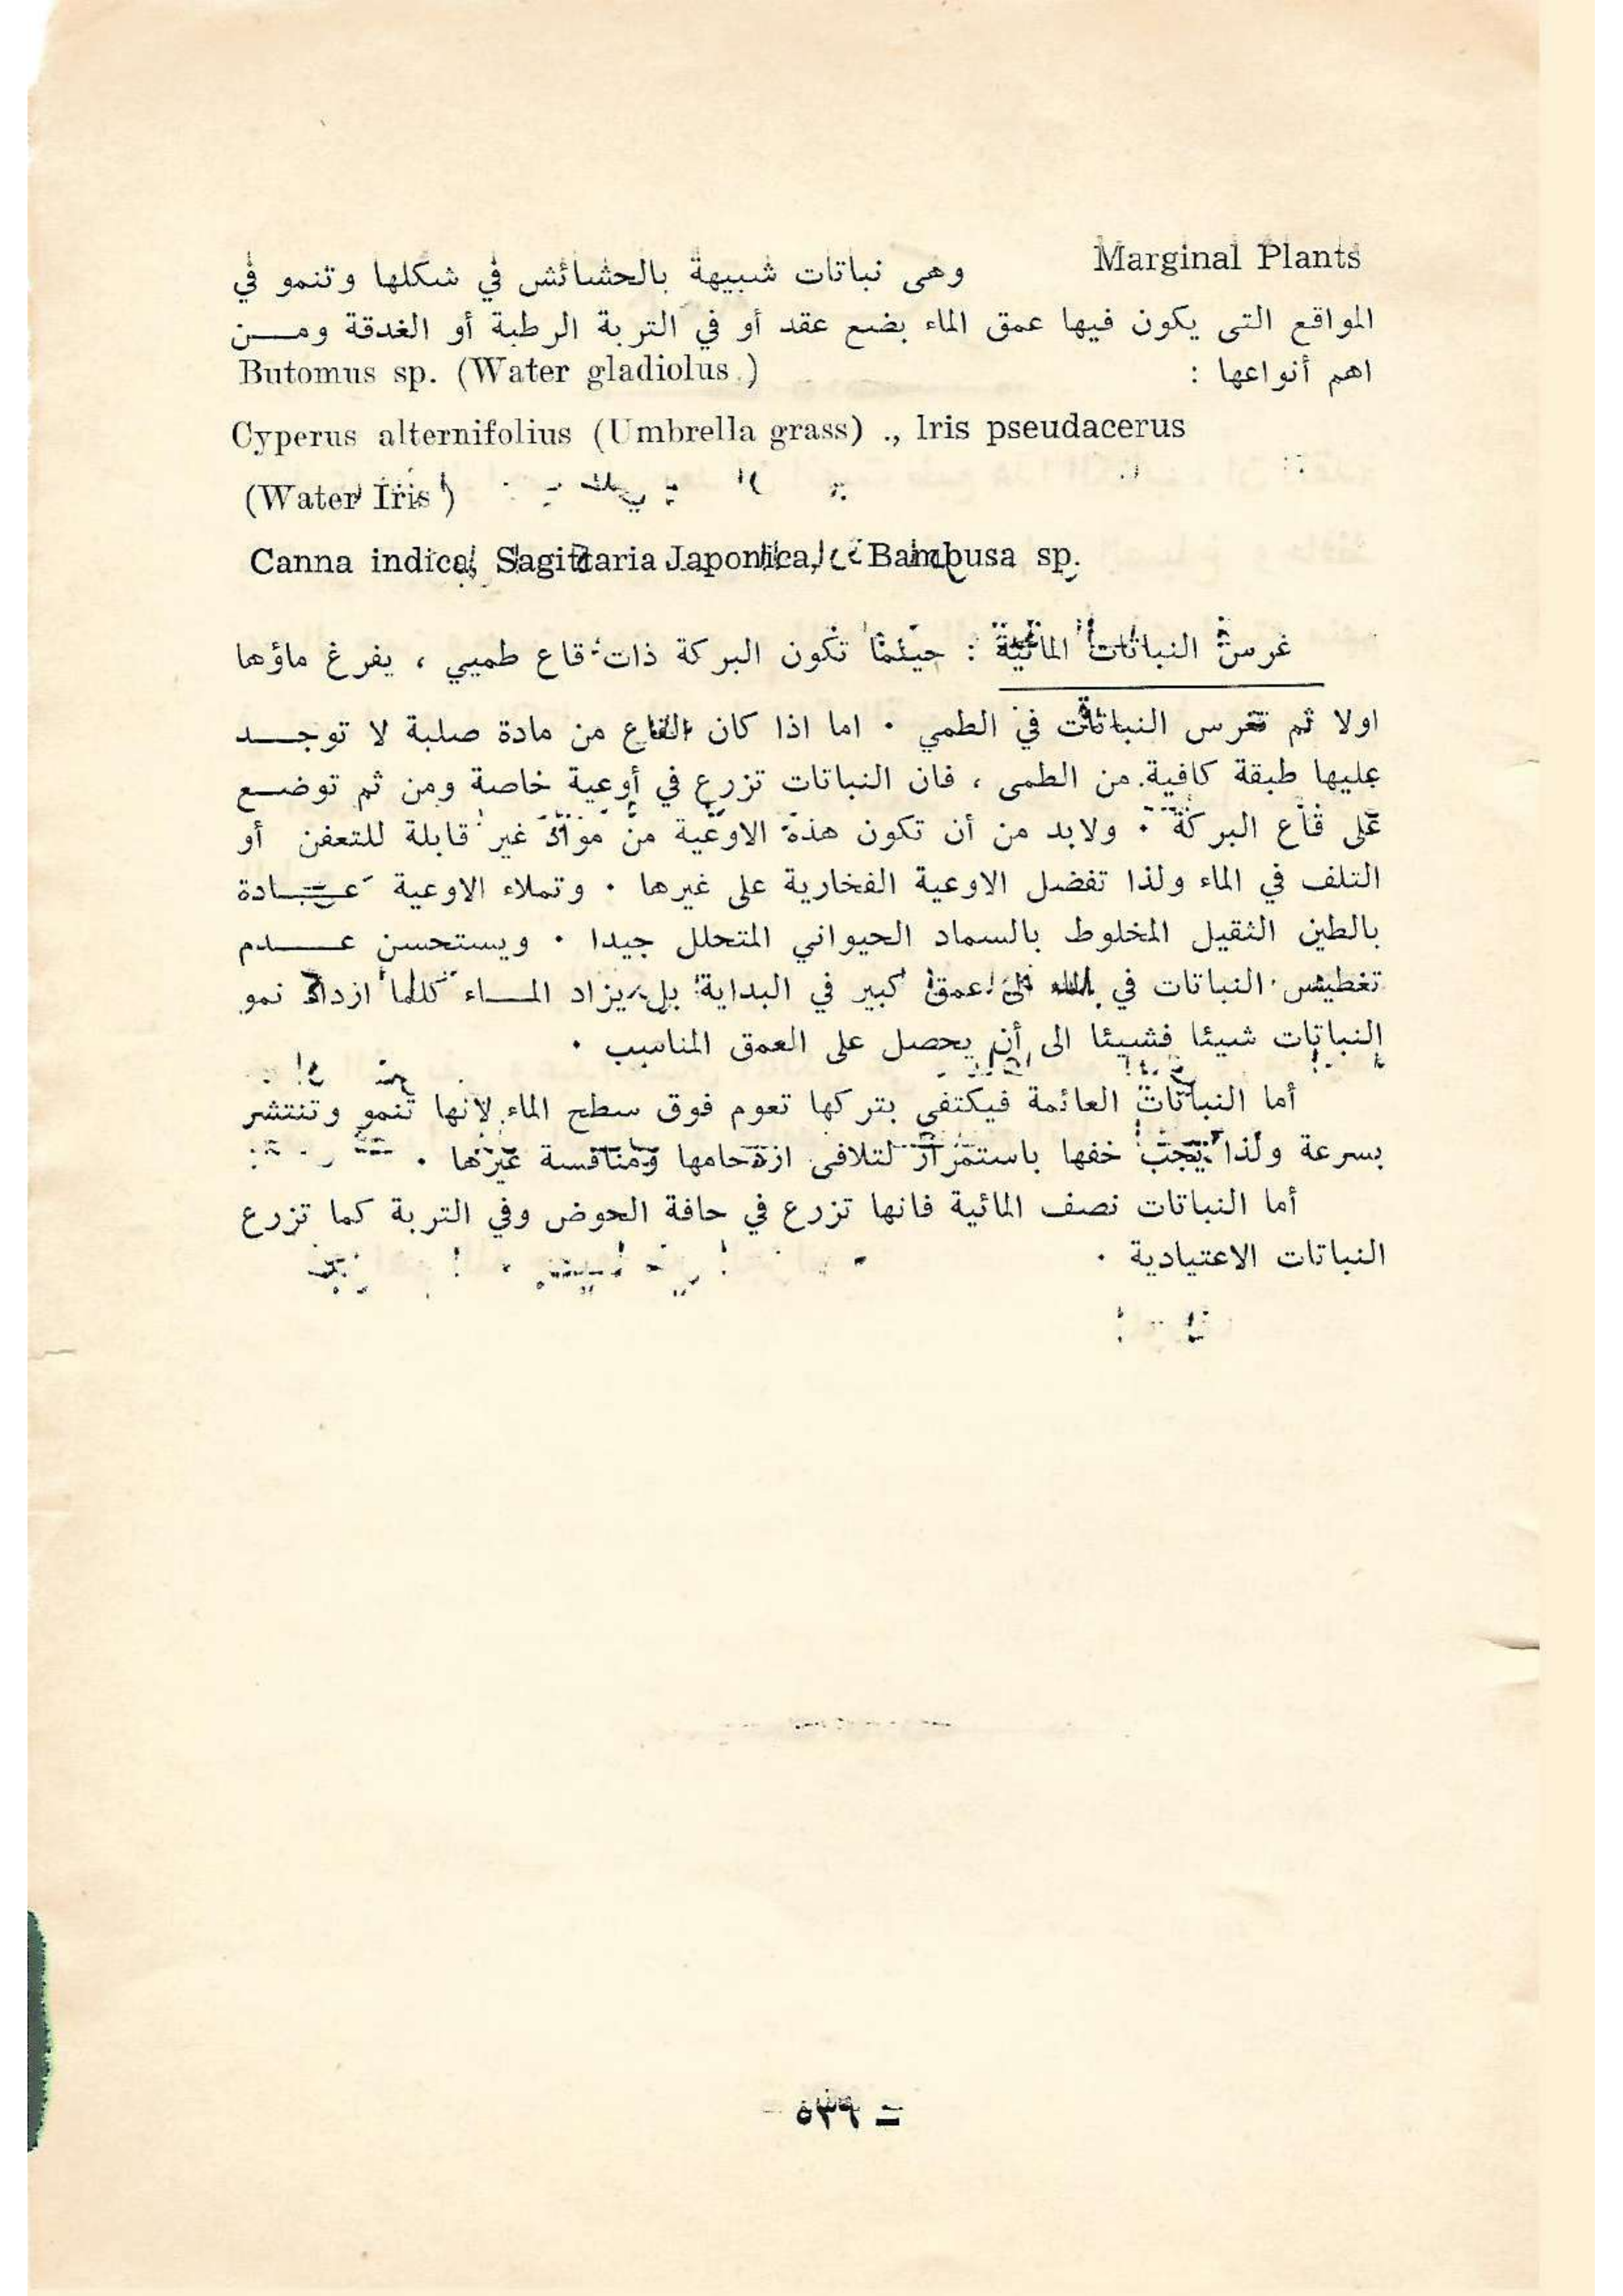 Marginal Plants وهى نباتات شبيهة بالحشائش في شكلها وتنمو في
المواقع التى يكون فيها عمق الماء بضع عقد أو في التربة الرطبة أو الغدقة ومـــن
اهم أنواعها : Butomus sp. (Water gladiolus.)
Cyperus alternifolius (Umbrella grass) ., Iris pseudacerus
(Water Iris)
Canna indica, Sagittaria Japonica, Bambusa sp.
غرس النباتات المائية : حيثما تكون البركة ذات قاع طميي ، يفرغ ماؤها
اولا ثم تغرس النباتات في الطمي . اما اذا كان القاع من مادة صلبة لا توجـــد
عليها طبقة كافية من الطمى ، فان النباتات تزرع في أوعية خاصة ومن ثم توضـــع
على قاع البركة . ولابد من أن تكون هذه الاوعية من مواد غير قابلة للتعفن أو
التلف في الماء ولذا تفضل الاوعية الفخارية على غيرها . وتملاء الاوعية عـــادة
بالطين الثقيل المخلوط بالسماد الحيواني المتحلل جيدا . ويستحسن عـــدم
تغطيس النباتات في الماء الى عمق كبير في البداية بل يزاد المـــاء كلما ازداد نمو
النباتات شيئا فشيئا الى أن يحصل على العمق المناسب .
أما النباتات العائمة فيكتفي بتركها تعوم فوق سطح الماء لانها تنمو وتنتشر
بسرعة ولذا يجب خفها باستمرار لتلافى ازدحامها ومنافسة غيرها .
أما النباتات نصف المائية فانها تزرع في حافة الحوض وفي التربة كما تزرع
النباتات الاعتيادية .